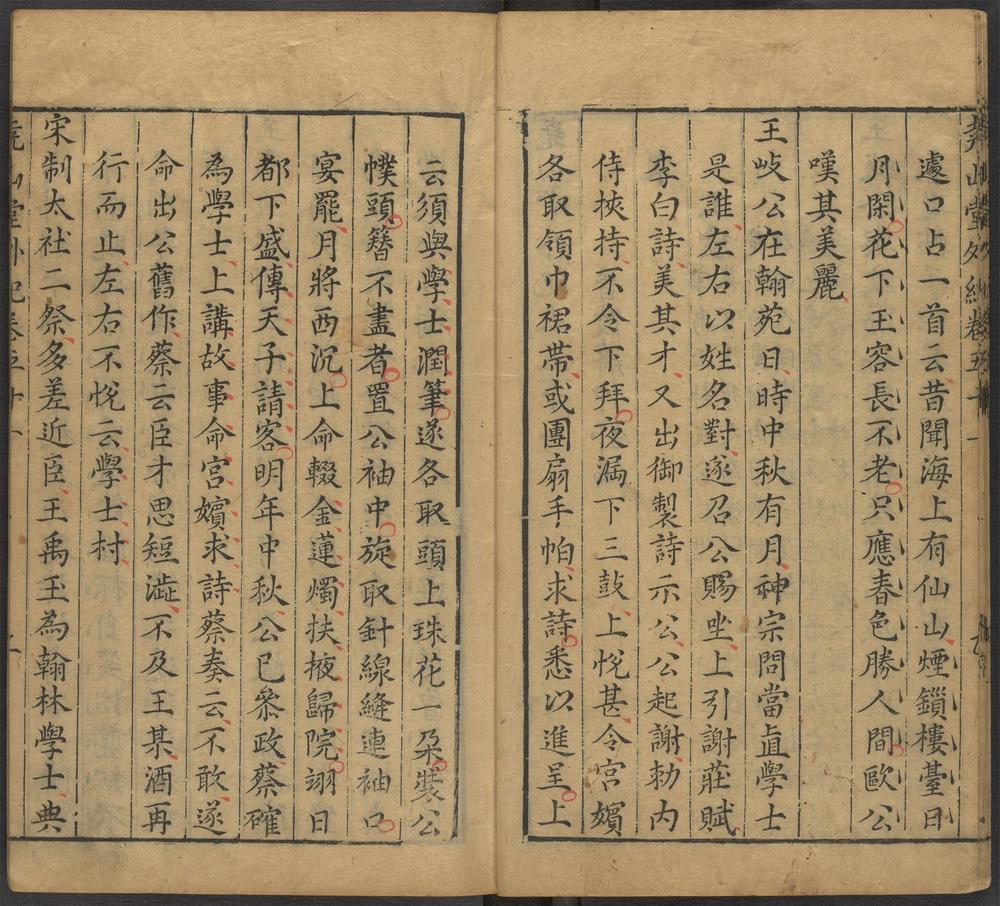 堯山堂外紀卷五十一
遽口占一首云昔聞海上有仙山煙鎖樓臺日
月閑花下玉容長不老只應春色勝人間歐公
嘆其美麗
王岐公在翰苑日時中秋有月神宗問當直學士
是誰左右以姓名對遂召公賜坐上引謝莊賦
李白詩美其才又出御製詩示公公起謝勑内
侍挾持不令下拜夜漏下三鼓上悅甚令宮嬪
各取領巾裙帶或團扇手帕求詩悉以進呈上
云須與學士潤筆遂各取頭上珠花一朶裝公
幞頭簪不盡者置公袖中旋取針線縫連袖口
宴罷月將西沉上命輟金蓮燭扶掖歸院翊日
都下盛傳天子請客明年中秋公已叅政蔡確
為學士上講故事命宮嬪求詩蔡奏云不敢遂
命出公舊作蔡云臣才思短澁不及王某酒再
行而止左右不悅云學士村
宋制太社二祭多差近臣王禹玉為翰林學士典
堯山堂外紀卷五十一